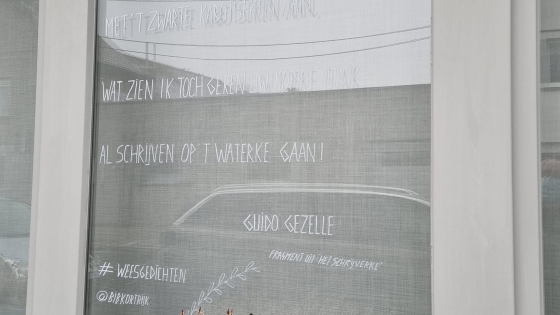 MET 'T ZWARTE KABOTSEKEN AAN,
WAT ZIEN IK TOCH GEREN UW KOPKE FLINK
AL SCHRIJVEN OP 'T WATERKE GAAN!
GUIDO GEZELLE
FRAGMENT UIT 'HET SCHRYVERKE'
# WEESGEDICHTEN
@BIBKORTRIJK